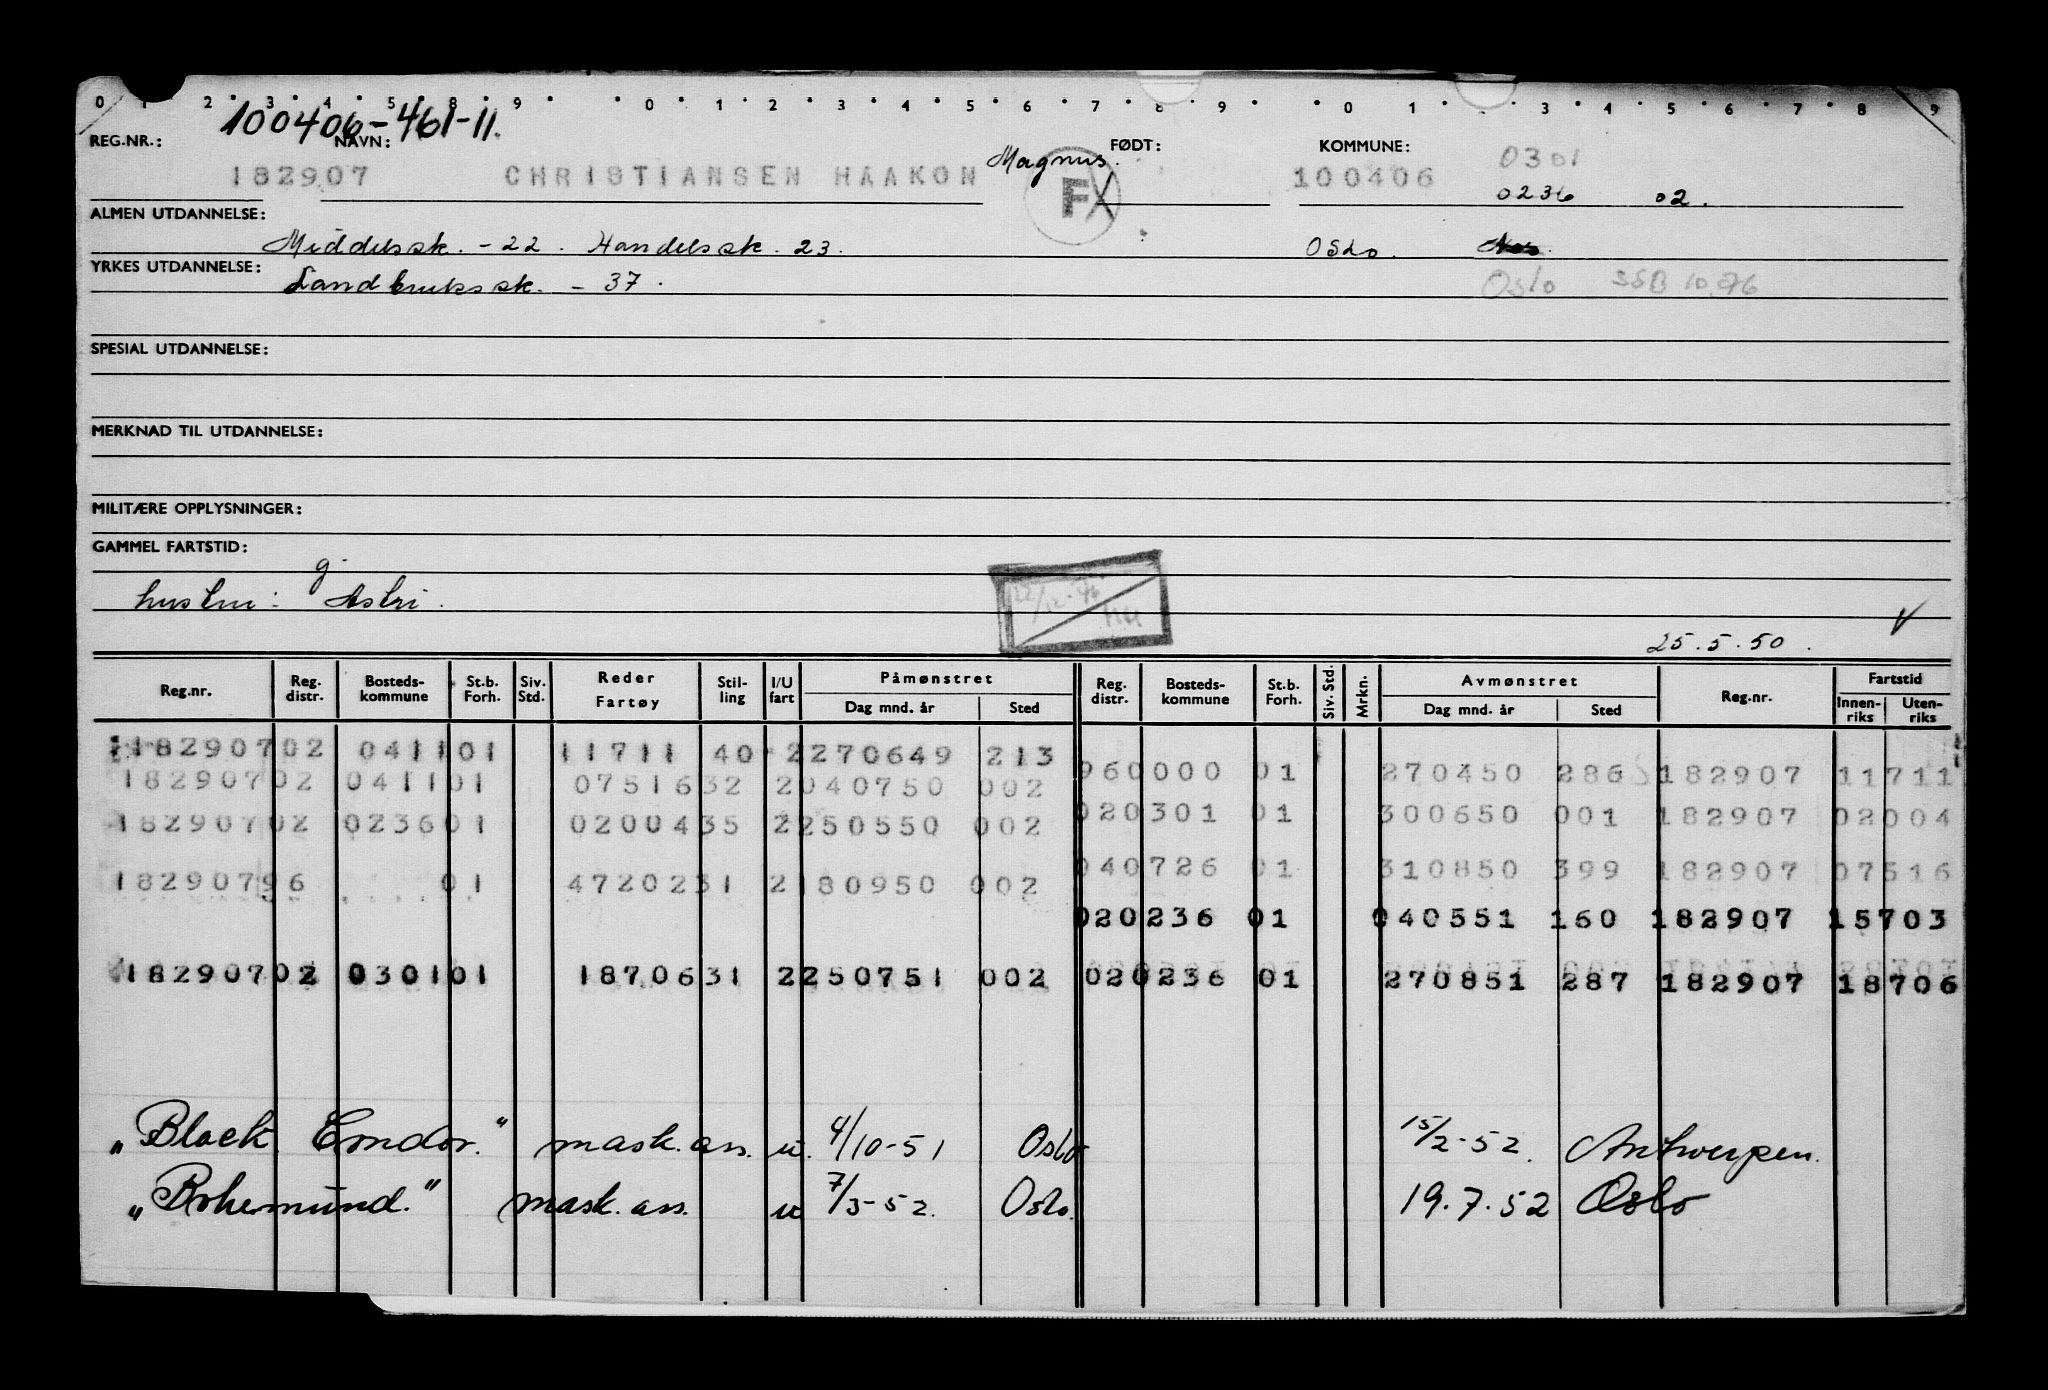 0 1 2 3 4 5 8 9 0 1 2 3 4 5 6 7 8 9 0 1 3 4 5 6 7 8 9
100406-461-11.
REG.NR.: NAVN: FØDT: KOMMUNE: 0301
182907 CHRISTIANSEN HAAKON Magnus. F 100406 0236 02.
ALMEN UTDANNELSE:
Middelssk. -22. Handelssk. 23. Oslo.
YRKES UTDANNELSE:
Landbrukssk. - 37. Oslo SSB 10.76
SPESIAL UTDANNELSE:
MERKNAD TIL UTDANNELSE:
MILITÆRE OPPLYSNINGER:
GAMMEL FARTSTID:
g
hustru: Astri.
25.5.50.
Reg.nr. Reg. distr. Bosteds-kommune St.b. Forh. Siv. Std. Reder Fartøy Stil-ling I/U fart Påmønstret Dag mnd. år Sted Reg. distr. Bosteds-kommune St.b. Forh. Siv. Std. Mrkn. Avmønstret Dag mnd. år Sted Reg.nr. Fartstid Innen-riks Uten-riks
182907 02 0411 01 11711 40 2 270649 213
960000 01 270450 286 182907 11711
182907 02 0411 01 07516 32 2 040750 002
020301 01 300650 001 182907 02004
182907 02 0236 01 02004 35 2 250550 002
040726 01 310850 399 182907 07516
182907 96 01 47202 31 2 180950 002
020236 01 040551 160 182907 15703
182907 02 0301 01 18706 31 2 250751 002 020236 01 270851 287 182907 18706
"Black Condor." mask. ass. u. 4/10-51 Oslo 15/2-52. Antwerpen.
"Bohemund." mask. ass. u 7/3-52. Oslo. 19.7.52 Oslo